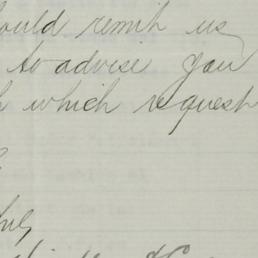 ould remit us
to advise you
h which request